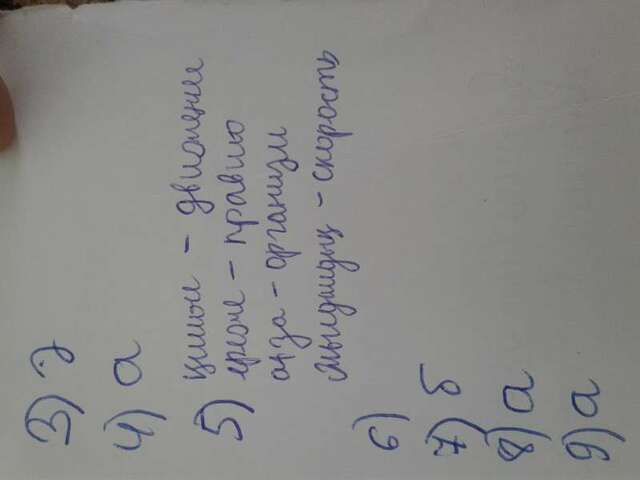 3) Ә
4) а
5) цимои - движение
ереже - правило
ағза - организм
жылдамдық - скорость
6)
7) б
8) а
9) а